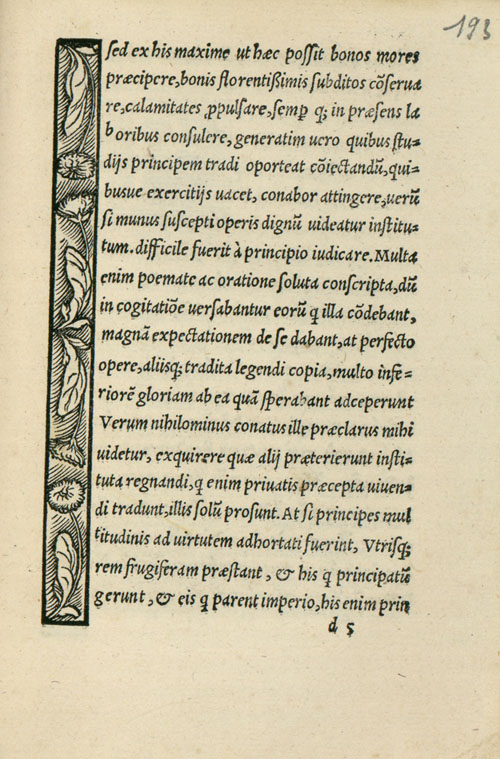 193
sed ex his maxime ut hæc possit bonos mores
præcipere, bonis florentißimis subditos cõserua
re, calamitates ꝓpulsare, semꝑ q; in præsens la
boribus consulere, generatim uero quibus stu=
dijs principem tradi oporteat cõiectandũ, qui=
busue exercitijs uacet, conabor attingere, uerũ
si munus suscepti operis dignũ uideatur institu=
tum. difficile fuerit à principio iudicare. Multa
enim poemate ac oratione soluta conscripta, dũ
in cogitatiõe uersabantur eorũ q illa cõdebant,
magnã expectationem de se dabant, at perfecto
opere, aliisq; tradita legendi copia, multo infe=
riorẽ gloriam ab ea quã sperabant adceperunt
Verum nihilominus conatus ille præclarus mihi
uidetur, exquirere quæ alij præterierunt insti=
tuta regnandi, q enim priuatis præcepta uiuen=
di tradunt, illis solũ prosunt. At si principes mul
titudinis ad uirtutem adhortati fuerint, Vtrisq;
rem frugiferam præstant, & his q principatũ
gerunt, & eis q parent imperio, his enim prin
d 5